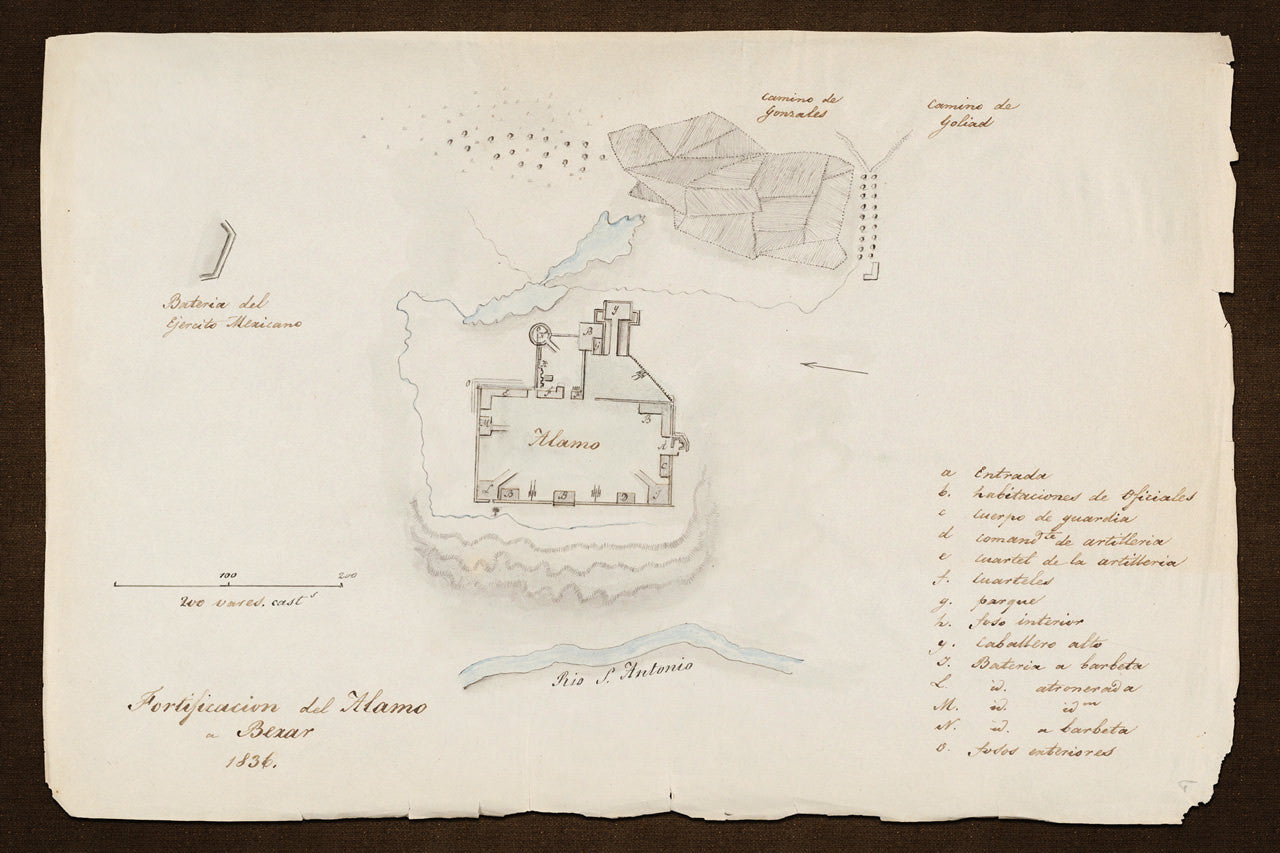 Camino de
Gonzales
Camino de
Goliad
Bateria del
Ejercito Mexicano
Alamo
a Entrada
b. habitaciones de Oficiales
c cuerpo de guardia
d comandgte de artilleria
e cuartel de la artilleria
f. cuarteles
g. parque
h. foso interior
y. caballero alto
J. Bateria a barbeta
L. id. atronerada
M. id. idm
N. id. a barbeta
o. fosos exteriores
100 200
200 vares. casts
Rio S. Antonio
Fortificacion del Alamo
a Bexar
1836.